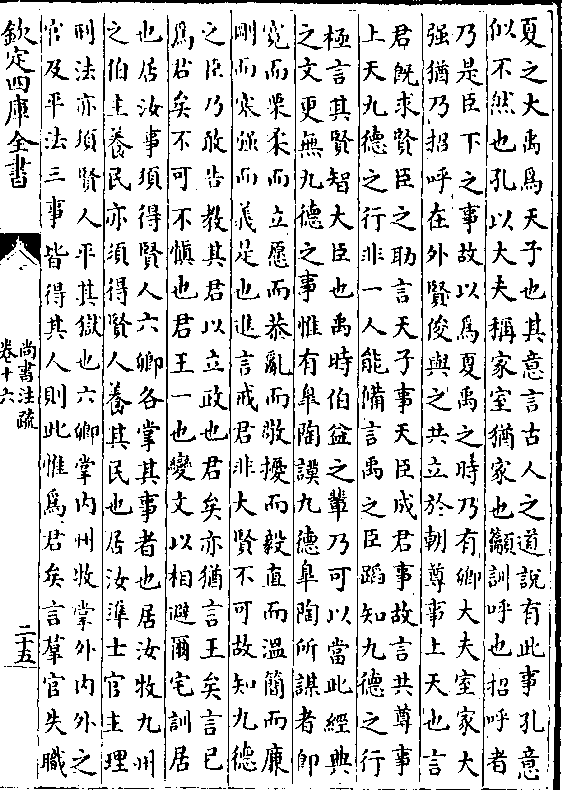 夏之大禹爲天子也其意言古人之道說有此事孔意
似不然也孔以大夫稱家室猶家也籲訓呼也招呼者
乃是臣下之事故以爲夏禹之時乃有卿大夫室家大
强猶乃招呼在外賢俊與之共立於朝尊事上天也言
君既求賢臣之助言天子事天臣成君事故言共尊事
上天九德之行非一人能備言禹之臣蹈知九德之行
極言其賢智大臣也禹時伯益之輩乃可以當此經典
之文更無九德之事惟有臯陶謨九德臯陶所謀者即
寛而栗柔而立愿而恭亂而敬擾而毅直而溫簡而廉
剛而塞强而義是也進言戒君非大賢不可故知九德
之臣乃敢告教其君以立政也君矣亦猶言王矣言已
爲君矣不可不慎也君王一也變文以相避爾宅訓居
也居汝事須得賢人六卿各掌其事者也居汝牧九州
之伯主養民亦須得賢人養其民也居汝準士官主理
刑法亦須賢人平其獄也六卿掌内州牧掌外内外之
官及平法三事皆得其人則此惟爲君矣言羣官失職
欽定四庫全書
尚書注疏
卷十六
二十五